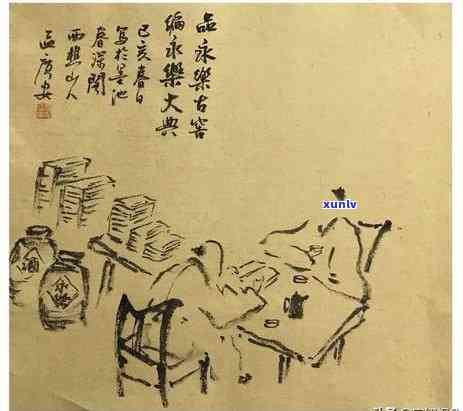 品永樂古窖
編永樂大典
己亥春日
寫於墨池
春深閣
西樵山人
區廣安
xunlv
酒
永樂